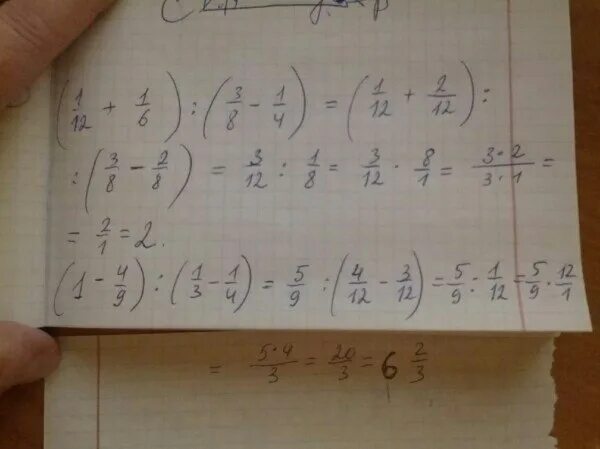 (1/12 + 1/6) : (3/8 - 1/4) = (1/12 + 2/12) :
: (3/8 - 2/8) = 3/12 : 1/8 = 3/12 · 8/1 = 3·2/3·1 =
= 2/1 = 2.
(1 - 4/9) : (1/3 - 1/4) = 5/9 : (4/12 - 3/12) = 5/9 : 1/12 = 5/9 · 12/1
= 5·4/3 = 20/3 = 6 2/3